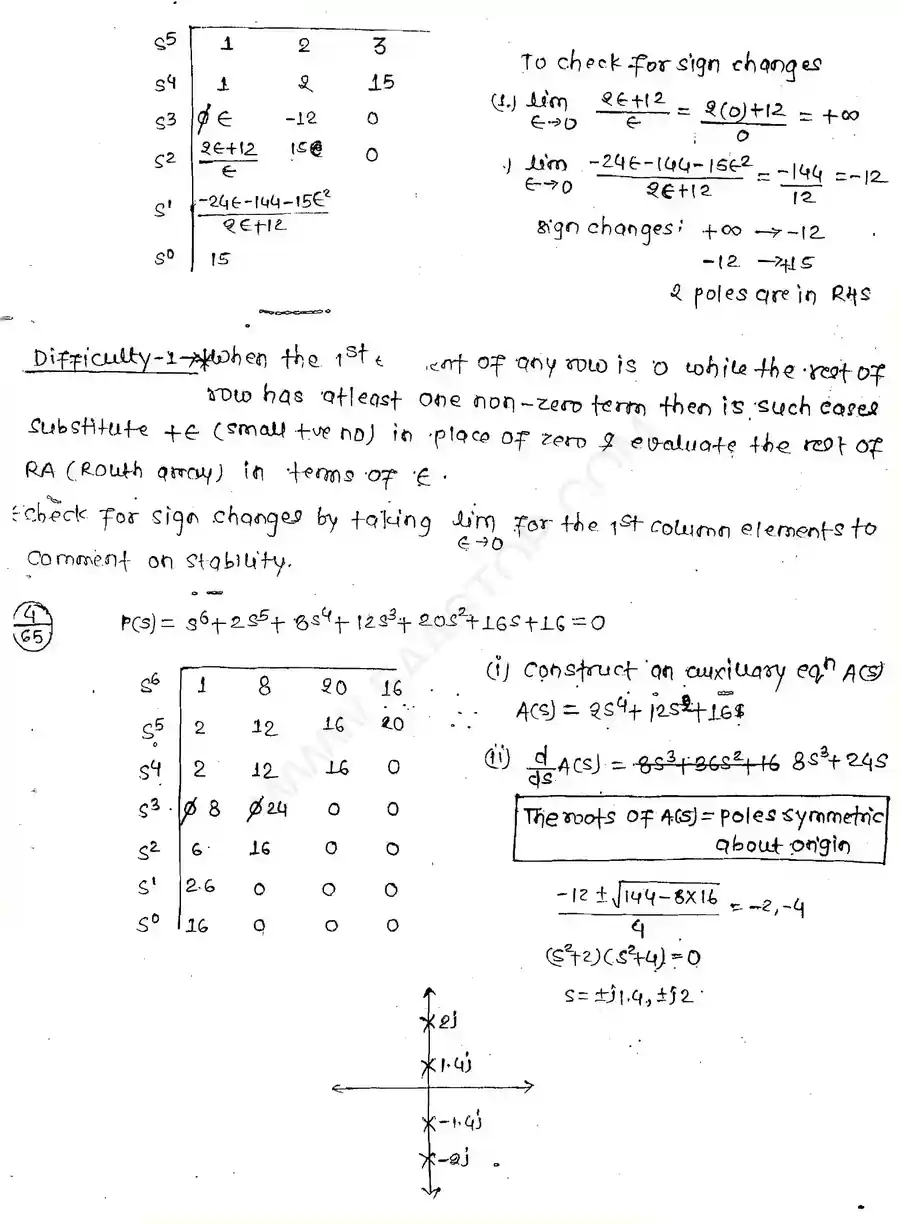 S⁵ 1 2 3
S⁴ 1 2 15
S³ 0 ϵ -12 0
S² 2ϵ+12/ϵ 15 0
S¹ -24ϵ-144-15ϵ²/2ϵ+12
S⁰ 15
To check for sign changes
(1.) lim ϵ→0 2ϵ+12/ϵ = 2(0)+12/0 = +∞
lim ϵ→0 -24ϵ-144-15ϵ²/2ϵ+12 = -144/12 = -12
sign changes: +∞ → -12
-12 → +15
2 poles are in RHS
Difficulty-1 → When the 1st of any row is 0 while the rest of
row has atleast one non-zero term then is such cases
substitute +ϵ (small +ve no) in place of zero & evaluate the rest of
RA (Routh array) in terms of ϵ.
check for sign changes by taking lim ϵ→0 for the 1st column elements to
comment on stability.
4/65 P(s) = s⁶+2s⁵+8s⁴+12s³+20s²+16s+16=0
S⁶ 1 8 20 16
S⁵ 2 12 16 20
S⁴ 2 12 16 0
S³ 0 8 0 24 0 0
S² 6 16 0 0
S¹ 2.6 0 0 0
S⁰ 16 0 0 0
(i) Construct an auxiluary eqⁿ A(s)
∴ A(s) = 2s⁴+12s²+16
(ii) d/ds A(s) = 8s³+36s²+16 8s³+24s
The roots of A(s) = poles symmetric
about origin
-12 ± √144-8×16/4 = -2, -4
(s²+2)(s²+4)=0
s= ±j1.4, ±j2
2j
1.4j
-1.4j
-2j